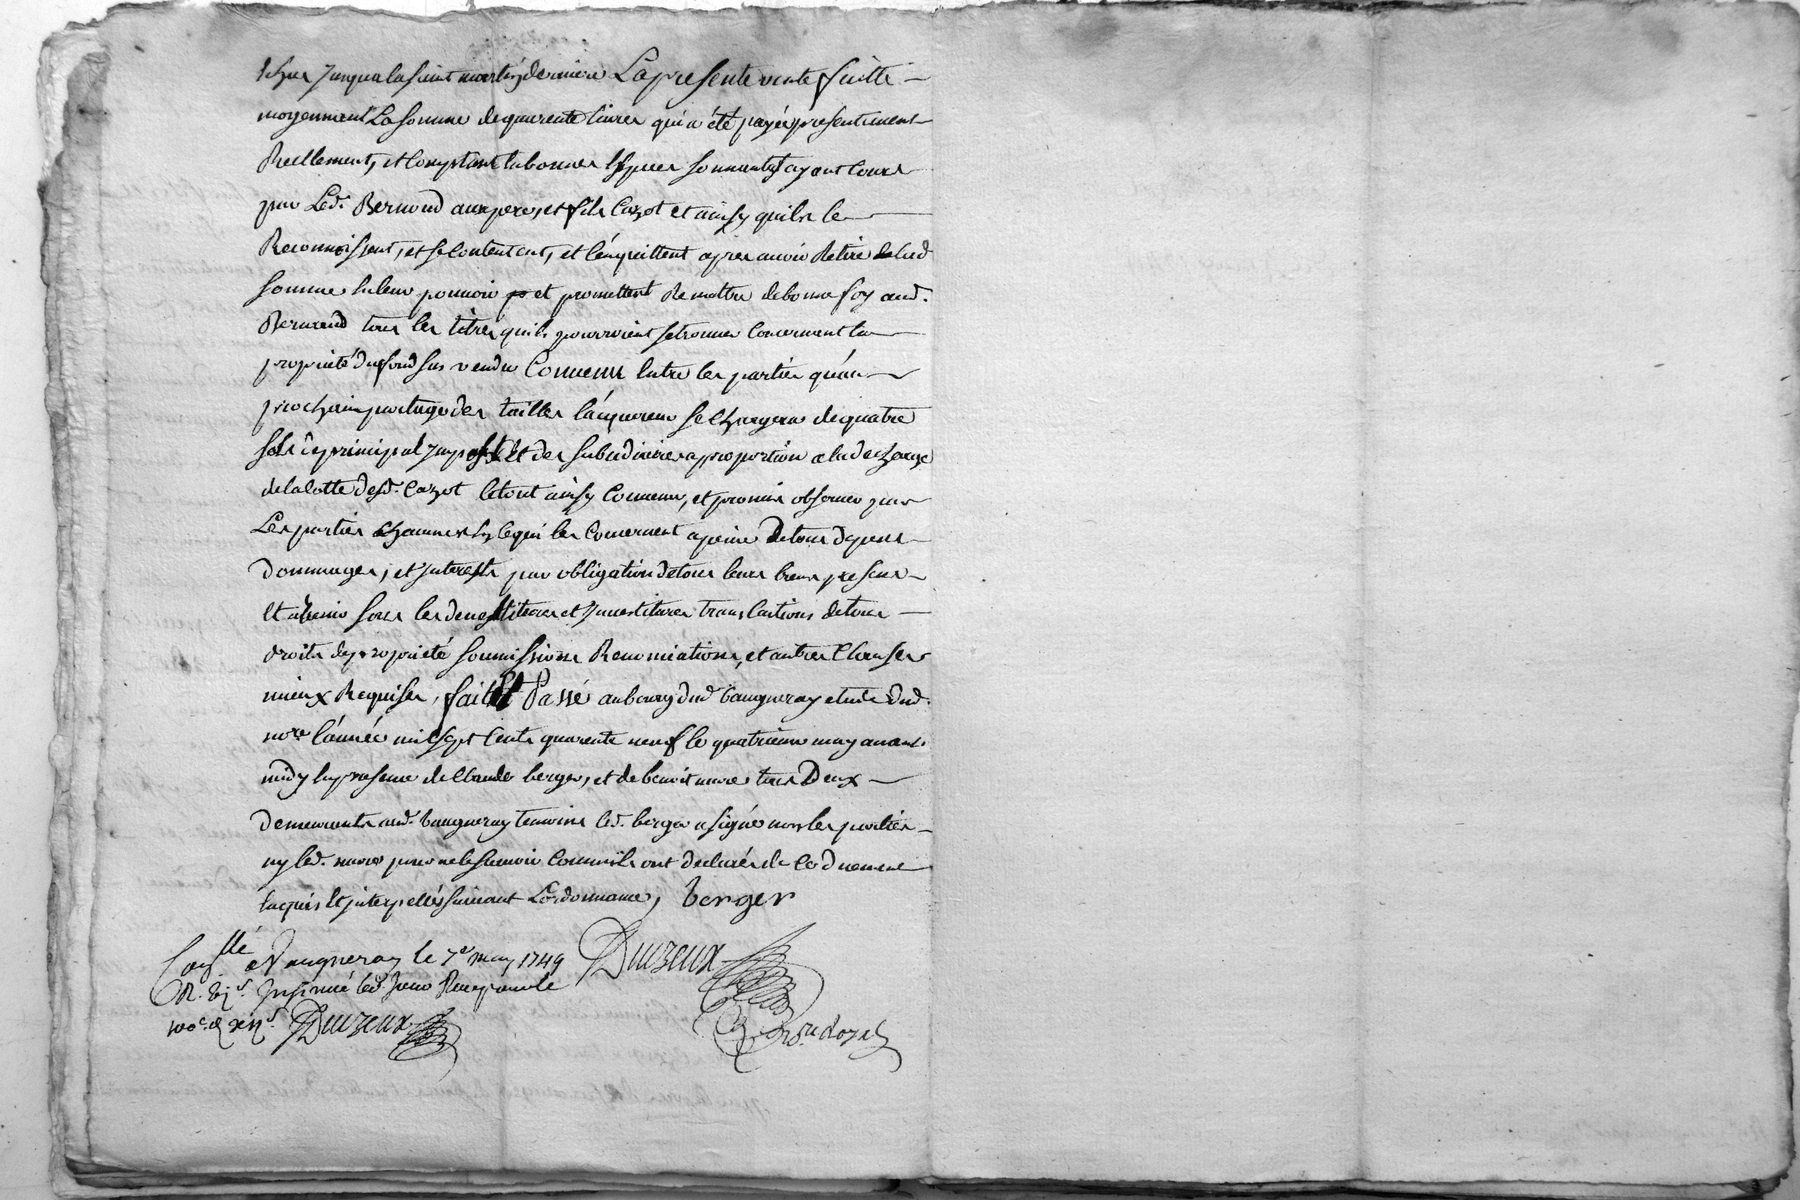 Jusqua la saint martin derniere La presente vente faitte
moyennant La somme de quarente livres qui a été payée presentement
Reellement, et Comptant En bonnes Especes sonnantes ayant Cours
par Led. Bernard aux pere, et fils Cazot et ainsy quils le
Reconnoissent, et se Contentent, et l'enquittent apres avoir Retiré Lad
somme En leur pouvoir et promettent Remettre de bonne foy aud.
Bernard tous les titres quils pourroient se trouver Concernent la
propriété du fond sus vendu Convenu Entre les parties qu'au
prochain partage des tailles l'acquereur se Chargera de quatre
sols de principal Impost Et des subcidiaires a proportion a la decharge
de la Cotte desd. Cazot le tout ainsy Convenu, et promis observer par
Les parties Chacunes En Ce qui les Concernent a peine de tous depens
dommages, et Interests par obligation de tous leurs biens presens
Et avenir sous les devestitures et Investitures translations de tous
droits de propriété soumissions Renonciations, et autres Clauses
mieux Requises, fait Et Passé au bourg dud Vaugneray etude dud.
nore l'année mil sept Cents quarente neuf le quatrieme may avant
midy En presence de Claude berger, et de benoit mure tous Deux
Demeurants aud. Vaugneray temoins led. berger a signé non les parties
ny led. mure pour ne le sçavoir Comme ils ont declarés de Ce duement
Enquis Et interpellés suivant L'ordonnance, berger
Conllé a Vaugneray le 7e may 1749 Duizeux
R. Insinué led. Jour Reçu
Duizeux